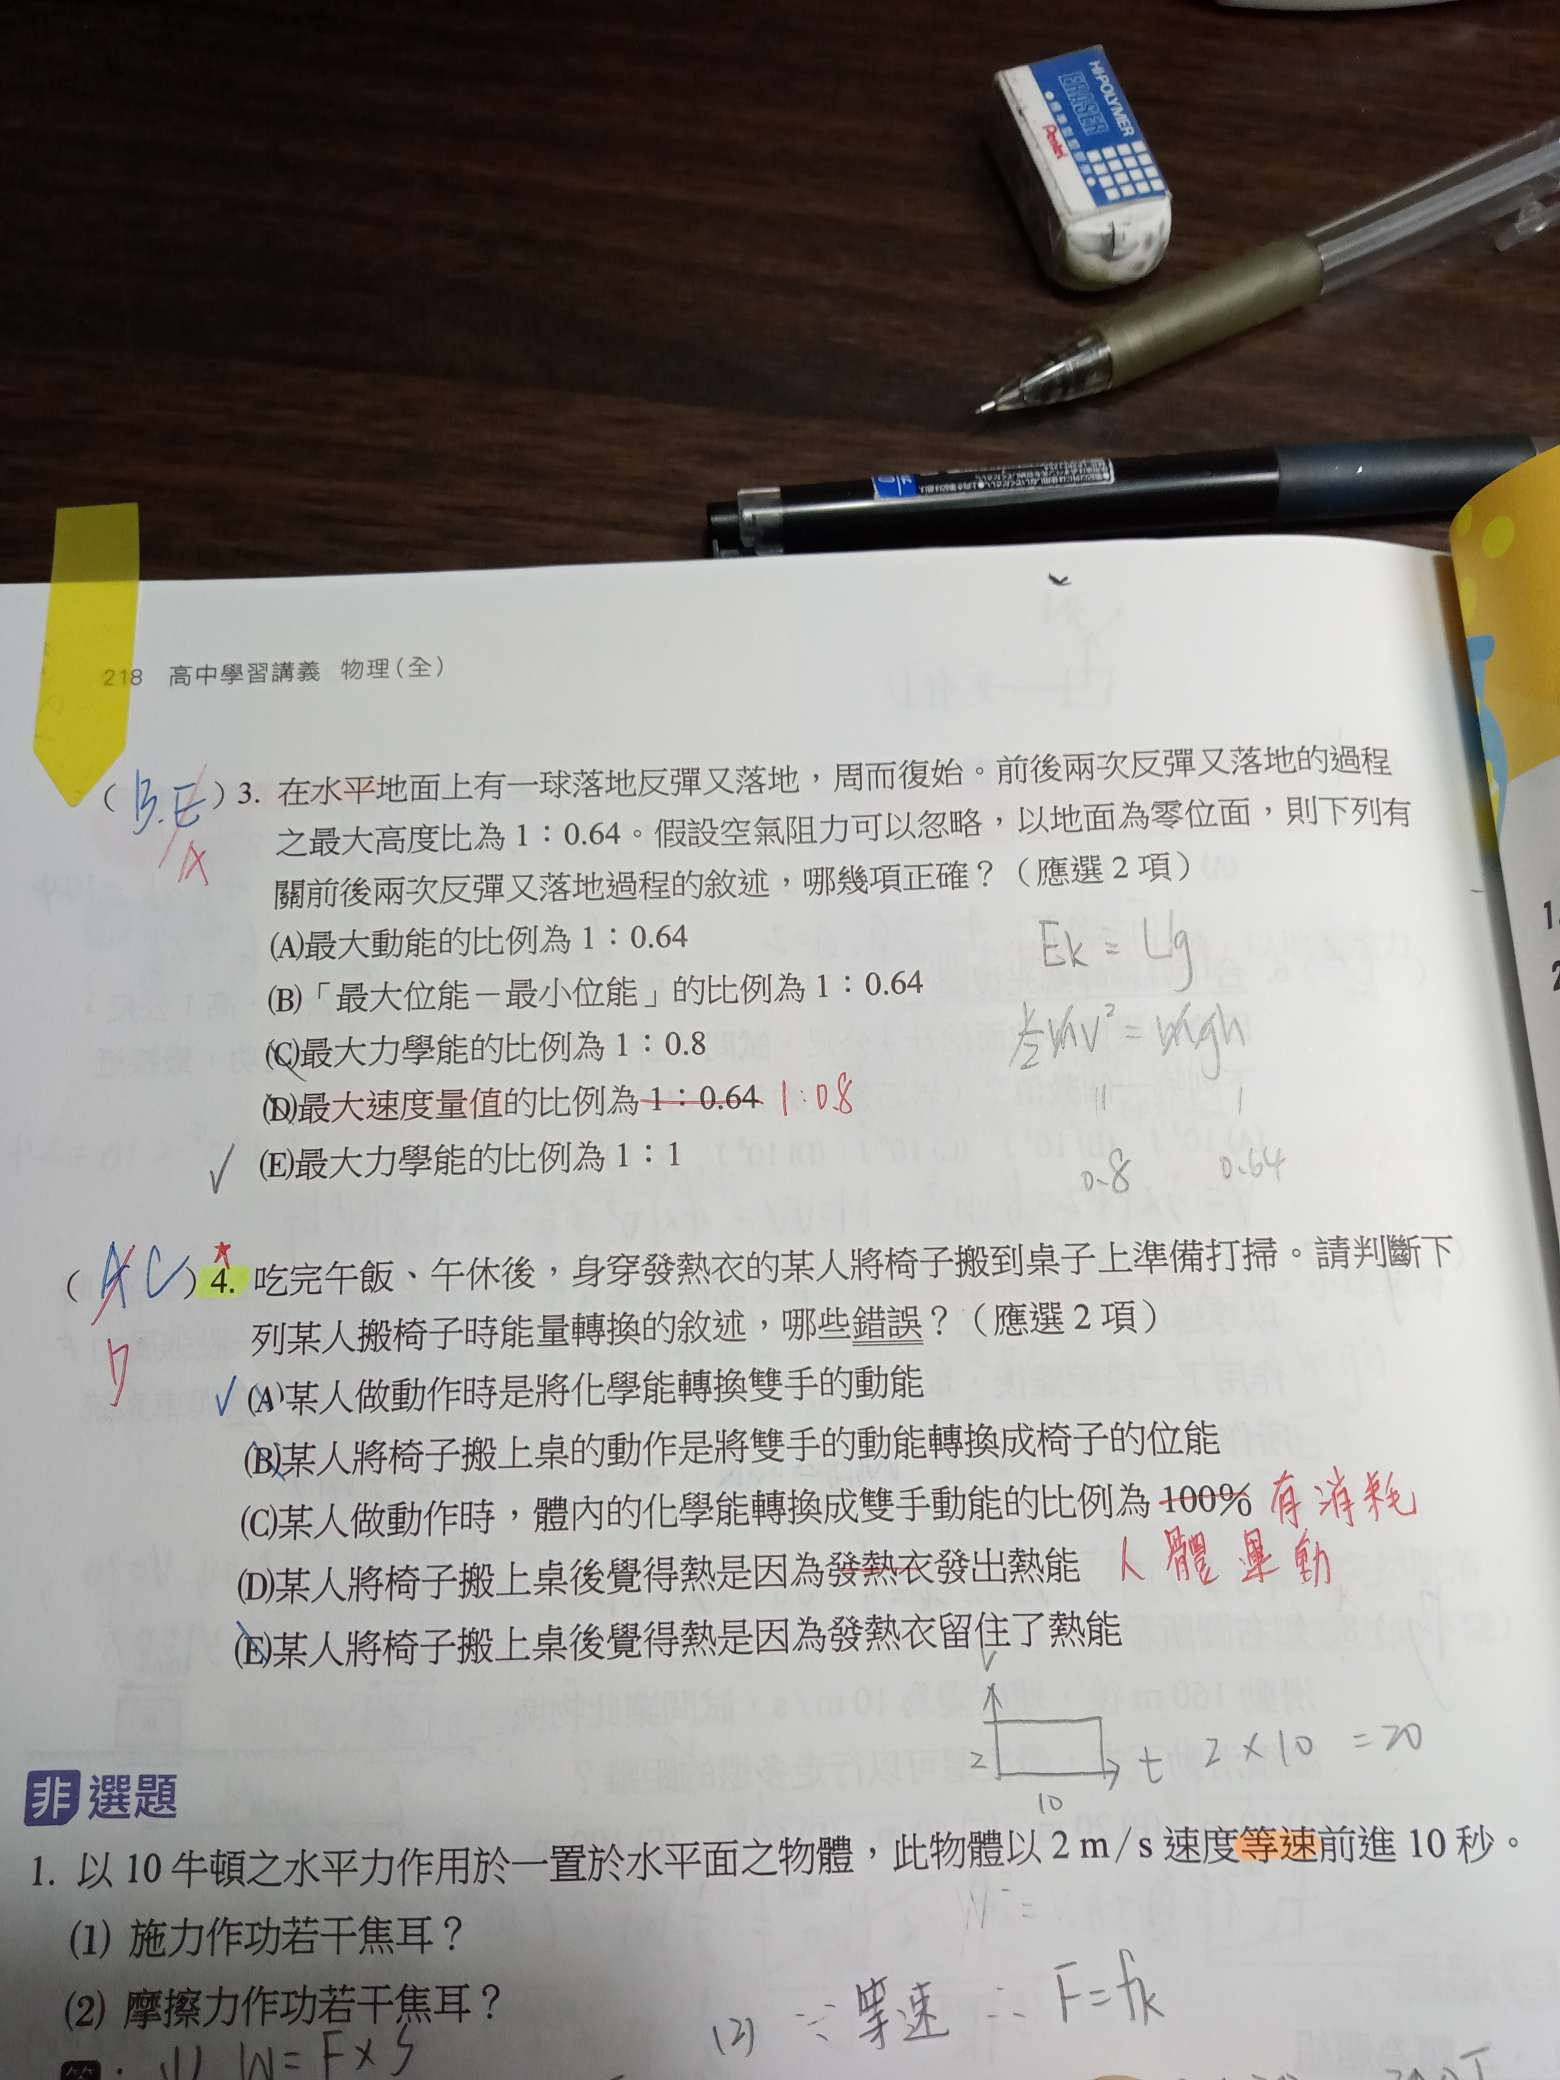 HI-POLYMER
ERASER
Pentel
218 高中學習講義 物理(全)
( B.E A ) 3. 在水平地面上有一球落地反彈又落地，周而復始。前後兩次反彈又落地的過程
之最大高度比為 1：0.64。假設空氣阻力可以忽略，以地面為零位面，則下列有
關前後兩次反彈又落地過程的敘述，哪幾項正確？（應選 2 項）
(A)最大動能的比例為 1：0.64
(B)「最大位能－最小位能」的比例為 1：0.64
(C)最大力學能的比例為 1：0.8
(D)最大速度量值的比例為 1：0.64 1:0.8
(E)最大力學能的比例為 1：1
Ek = Ug
½mv² = mgh
0.8 0.64
( A C D ) 4. 吃完午飯、午休後，身穿發熱衣的某人將椅子搬到桌子上準備打掃。請判斷下
列某人搬椅子時能量轉換的敘述，哪些錯誤？（應選 2 項）
(A)某人做動作時是將化學能轉換雙手的動能
(B)某人將椅子搬上桌的動作是將雙手的動能轉換成椅子的位能
(C)某人做動作時，體內的化學能轉換成雙手動能的比例為 100% 有消耗
(D)某人將椅子搬上桌後覺得熱是因為發熱衣發出熱能 人體運動
(E)某人將椅子搬上桌後覺得熱是因為發熱衣留住了熱能
V
2 t 2×10 =20
10
非選題
1. 以 10 牛頓之水平力作用於一置於水平面之物體，此物體以 2 m／s 速度等速前進 10 秒。
(1) 施力作功若干焦耳？
W=
(2) 摩擦力作功若干焦耳？
(2) ∵等速 ∴ F=fk
(1) W=F×S